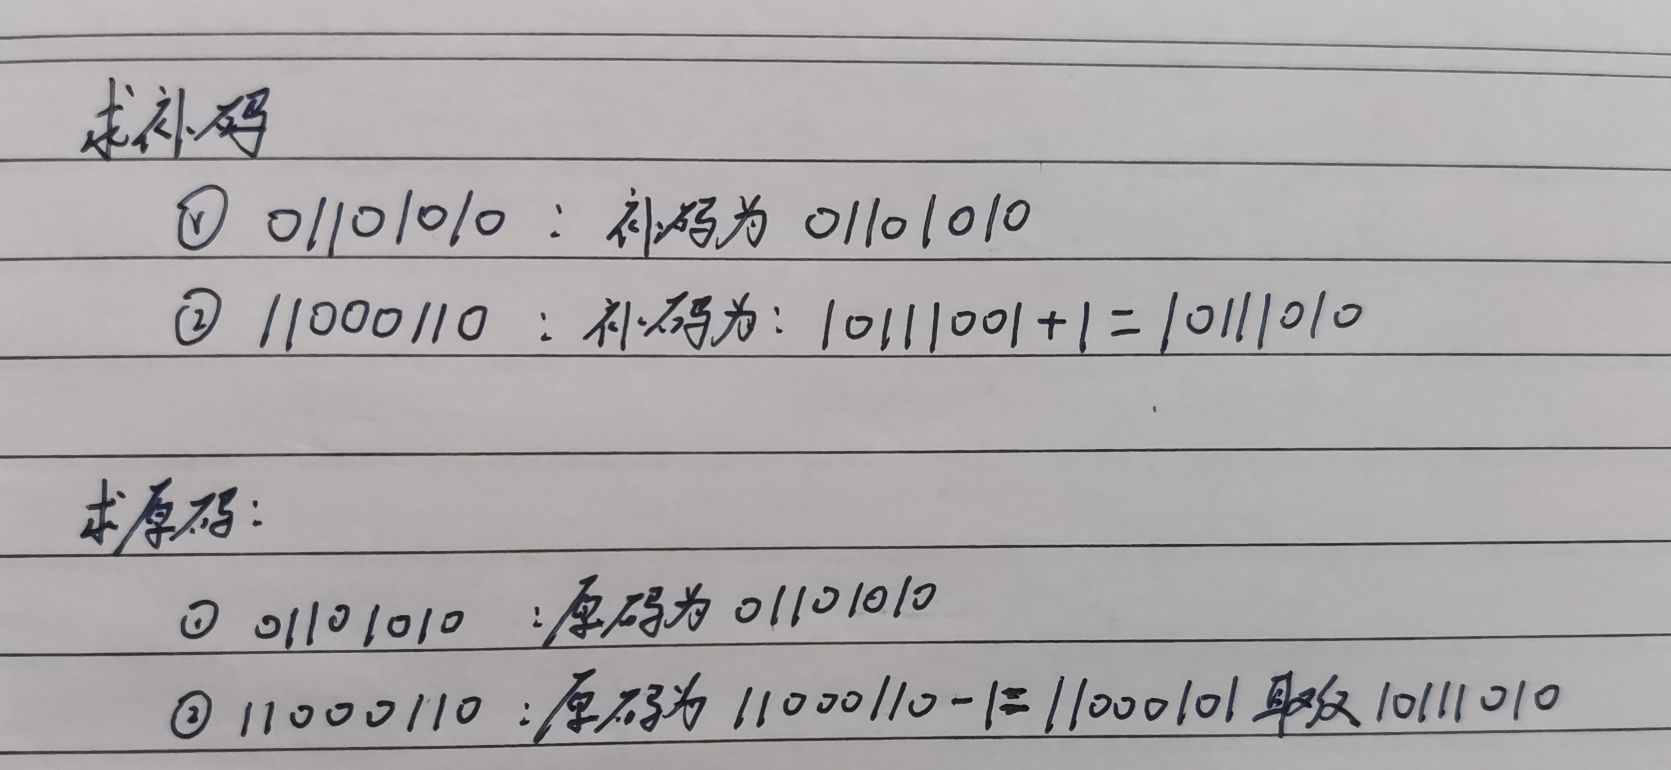 求补码
① 01101010 : 补码为 01101010
② 11000110 : 补码为: 10111001+1=10111010
求原码:
① 01101010 :原码为 01101010
② 11000110 :原码为 11000110-1=11000101 取反 10111010